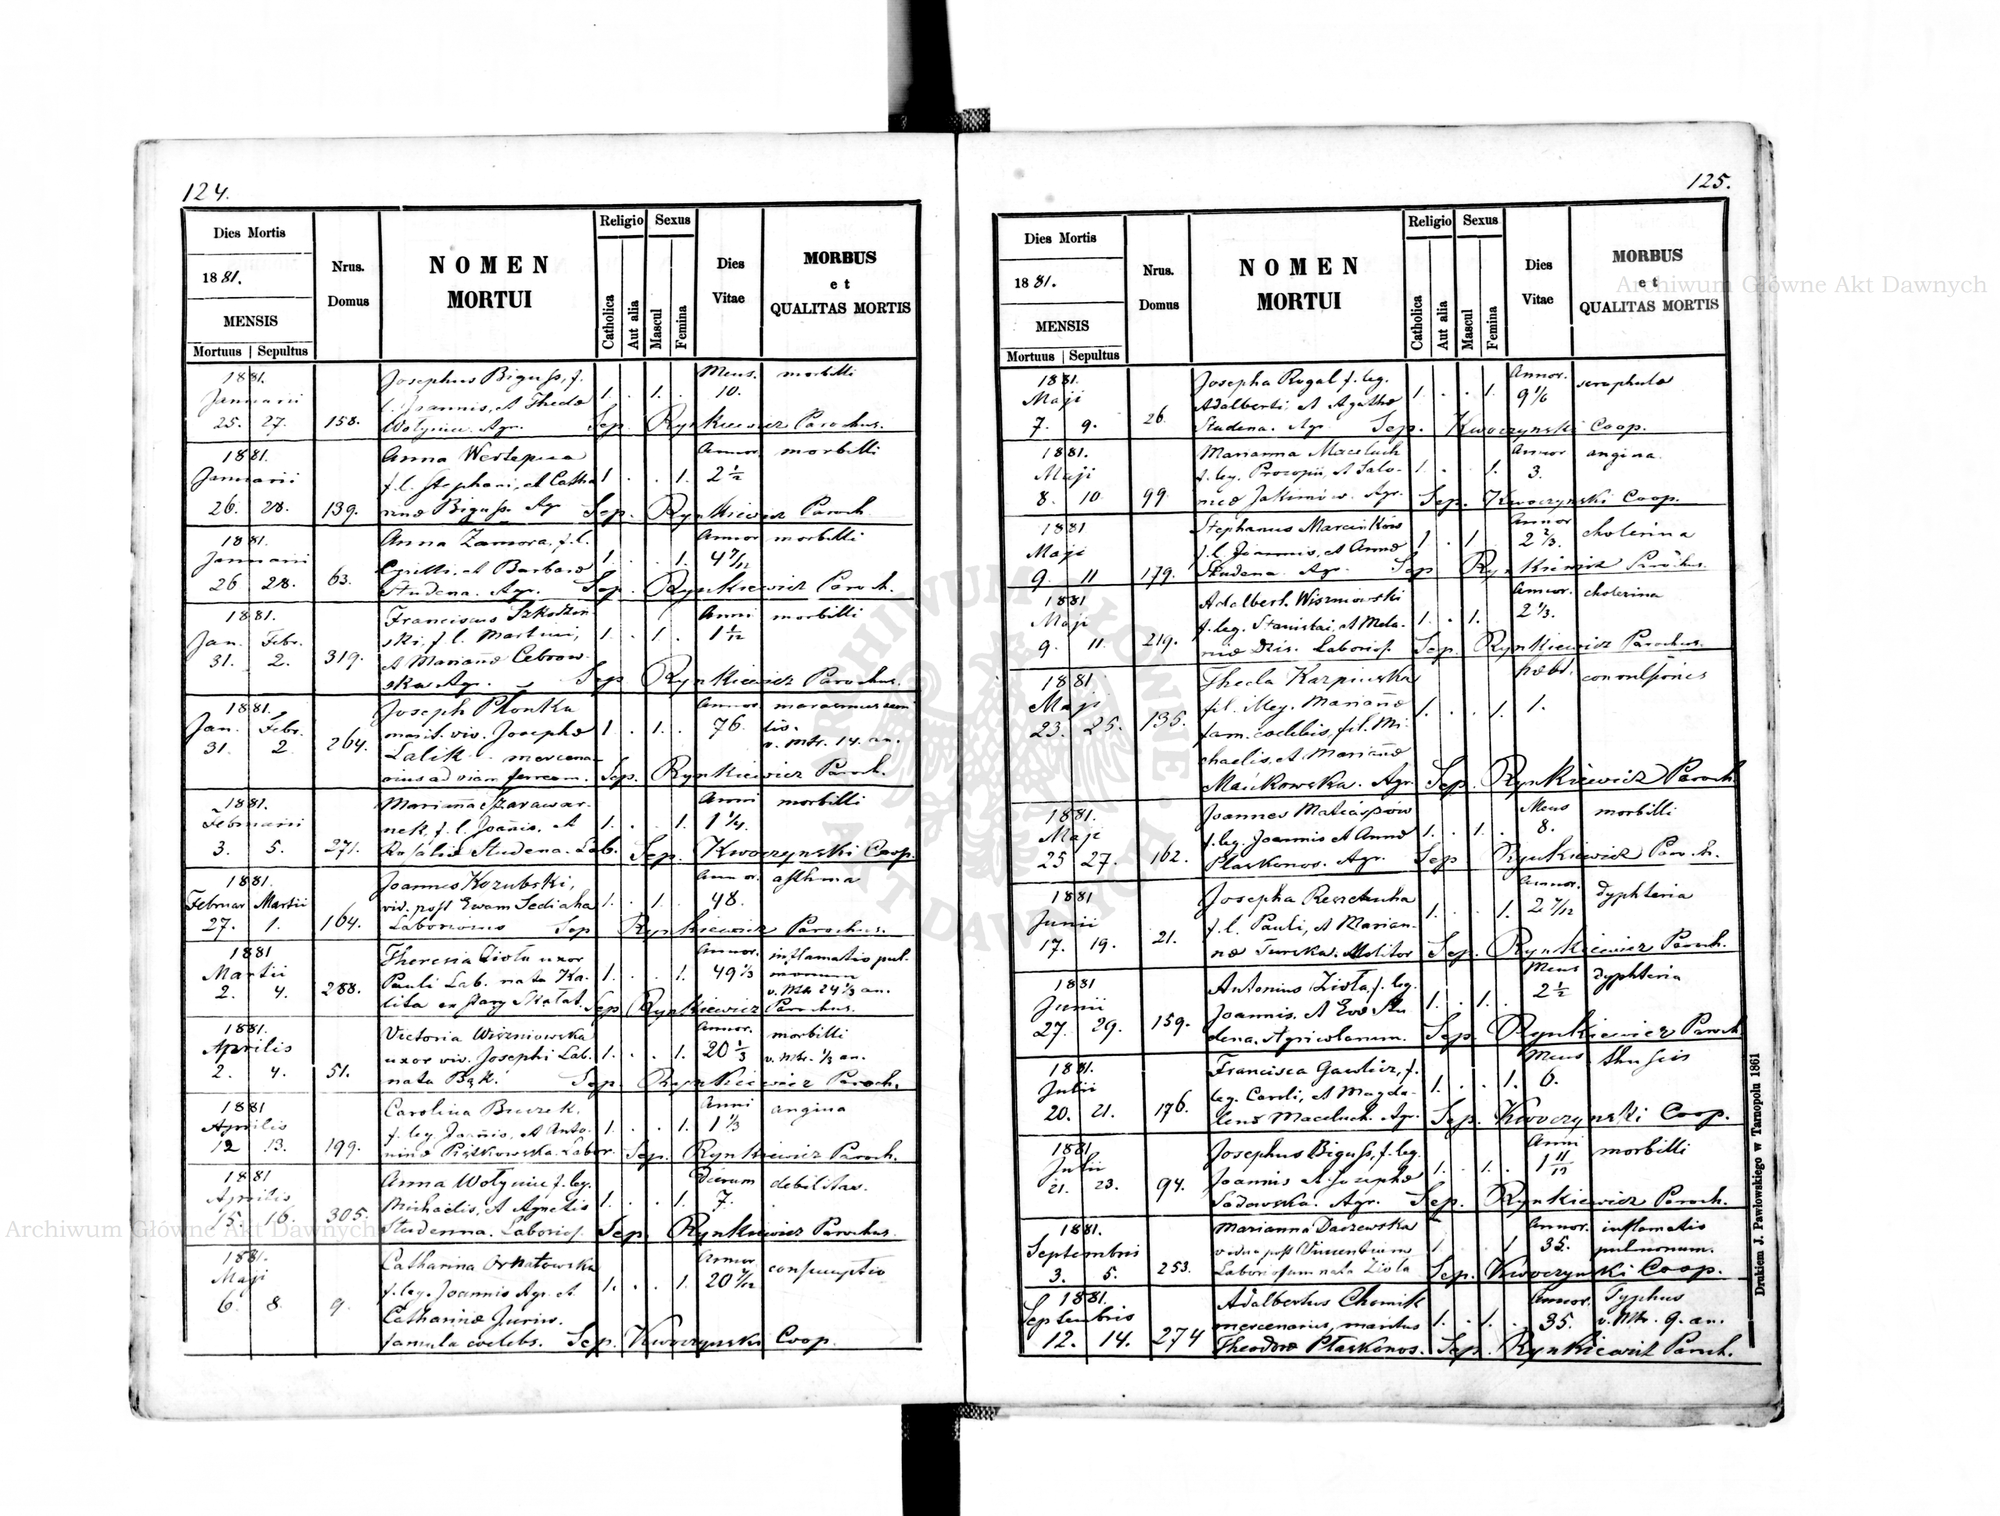 124.
Dies Mortis
1881.
MENSIS
Mortuus | Sepultus
Nrus.
Domus
NOMEN
MORTUI
Religio
Catholica
Aut alia
Sexus
Mascul
Femina
Dies
Vitae
MORBUS
et
QUALITAS MORTIS
1881. Josephus Biguss, f. Mens. morbilli
Januarii l. Joannis, et Theclae 1. . 1. . 10.
25. 27. 158. Wołyniec. Agr. Sep. Rynkiewicz Parochus.
1881. Anna Annor. morbilli
Januarii f. l. Stephani, et Catha 1. . . 1. 2 1/2
26. 28. 139. rinae Biguss. Agr Sep. Rynkiewicz Paroch.
1881. Anna Zamora, f. l. Annor morbilli
Januarii Cyrilli, et Barbarae 1. . . 1. 4 7/12
26 28. 63. Studena. Agr. Sep. Rynkiewicz Paroch.
1881. Franciscus Szkodziń Anni morbilli
Jan. Febr. ski, f. l. Martini, 1. . 1. . 1 1/12
31. 2. 319. et Mariannae Cebrow
ska Agr. Sep Rynkiewicz Parochus.
1881. Joseph Płonka Annor marasmus seni
Jan. Febr. marit. viv. Josephae 1. . 1. . 76. lis.
31. 2. 264. Lalik mercena v. Mtr. 14. an.
rius ad viam ferream. Sep. Rynkiewicz Paroch.
1881. Marianna Szarawar Anni morbilli
Februarii nek, f. l. Joannis, et 1. . . 1. 1 1/4.
3. 5. 271. Rosaliae Studena. Lab. Sep. Kwoczynski Coop.
1881. Joannes Kozubski, Annor. asthma
Februar Martii vid. post Evam Sediaha 1. . 1. . 48.
27. 1. 164. Laboriosus Sep Rynkiewicz Parochus.
1881 Theresia Zioła uxor Annor. inflamatio pul
Martii Pauli Lab. nata Ka 1. . . 1. 49 1/3 monum
2. 4. 288. lita ex Stary Skałat. v. Mtr 24 1/3 an.
Sep Rynkiewicz Parochus.
1881. Victoria Wiśniowska Annor. morbilli
Aprilis uxor viv. Josephi Lab. 1. . . 1. 20 1/3 v. Mtr. 1/3 an.
2. 4. 51. nata Bąk. Sep. Rynkiewicz Paroch.
1881 Carolina Buczek. Anni angina
Aprilis f. leg. Joannis, et Anto 1. . . 1. 1 1/3
12 13. 199. ninae Piątkowska. Labor. Sep. Rynkiewicz Paroch.
1881 Anna Wołyniec f. leg. Dierum debilitas.
Aprilis Michaelis, et Agnetis 1. . . 1. 7.
15. 16. 305. Studenna. Laborios. Sep. Rynkiewicz Parochus.
1881. Catharina Ornatowska Annor consumptio
Maji f. leg. Joannis Agr. et 1. . . 1. 20 7/12
6. 8. 9. Catharinae Juriw.
famula coelebs. Sep. Kwoczynski Coop.
125.
Dies Mortis
1881.
MENSIS
Mortuus | Sepultus
Nrus.
Domus
NOMEN
MORTUI
Religio
Catholica
Aut alia
Sexus
Mascul
Femina
Dies
Vitae
MORBUS
et
QUALITAS MORTIS
1881. Josepha Rogal f. leg. Annor. scraphulae
Maji Adalberti, et Agathae 1. . . 1. 9 1/6
7. 9. 26. Studena. Agr Sep. Kwoczynski Coop.
1881. Marianna Maceluch Annor angina.
Maji f. leg. Procopii, et Salo 1. . . 1. 3.
8. 10 99. meae Jakimów. Agr. Sep. Kwoczynski Coop.
1881 Stephanus Marcinków Annor cholerina
Maji f. l. Joannis, et Annae 1 . 1 2 2/3.
9. 11 179. Studena. Agr. Sep Rynkiewicz Parochus.
1881 Adalbert. Wiśniowski Annor. cholerina
Maji f. leg. Stanislai, et Mela 1. . 1. 2 1/3.
9. 11 219. niae Dzis. Laborios. Sep. Rynkiewicz Parochus.
1881 Thecla Karpinska hebd. convulsiones
Maji fil. illeg. Mariannae 1. . . 1. 1.
23. 25. 135. fam. coelibis, fil. Mi
chaelis, et Mariannae
Mańkowska. Agr. Sep. Rynkiewicz Paroch.
1881. Joannes Matiaszów Mens morbilli
Maji f. leg. Joannis et Annae 1. . 1. . 8.
25 27. 162. Płaskonos. Agr. Sep Rynkiewicz Paroch.
1881 Josepha Annor. dyphteria
Junii f. l. Pauli, et Marian 1. . . 1. 2 7/12
17. 19. 21. nae Turska. Molitor Sep. Rynkiewicz Paroch.
1881 Antonius Zioła, f. leg. Mens dyphteria
Junii Joannis, et Evae Stu 1. . 1. 2 1/2
27. 29. 159. dena. Agricolarum. Sep. Rynkiewicz Paroch.
1881. Francisca Gawlicz, f. Mens
Julii leg. Caroli, et Magda 1. . . 1. 6.
20. 21. 176. lenae Maceluch. Agr. Sep. Kwoczynski Coop.
1881. Josephus Biguss, f. leg. Anni morbilli
Julii Joannis et Josephae 1. . 1. . 1 11/12
21. 23. 94. Sadowska. Agr. Sep. Rynkiewicz Paroch.
1881. Marianna Daczewska Annor. inflamatio
Septembris vidua post Vincentium 1. . . 1 35. pulmonum.
3. 5. 253. Laboriosum nata Zioła Sep. Kwoczynski Coop.
1881. Adalbertus Chomik Annor. Typhus
Septembris mercenarius, maritus 1. . 1. . 35. v. Mtr. 9. an.
12. 14. 274 Theodorae Płaskonos. Sep. Rynkiewicz Paroch.
Drukiem J. Pawłowskiego w Tarnopolu 1861
Archiwum Główne Akt Dawnych
Archiwum Główne Akt Dawnych
ARCHIWUM GŁÓWNE AKT DAWNYCH